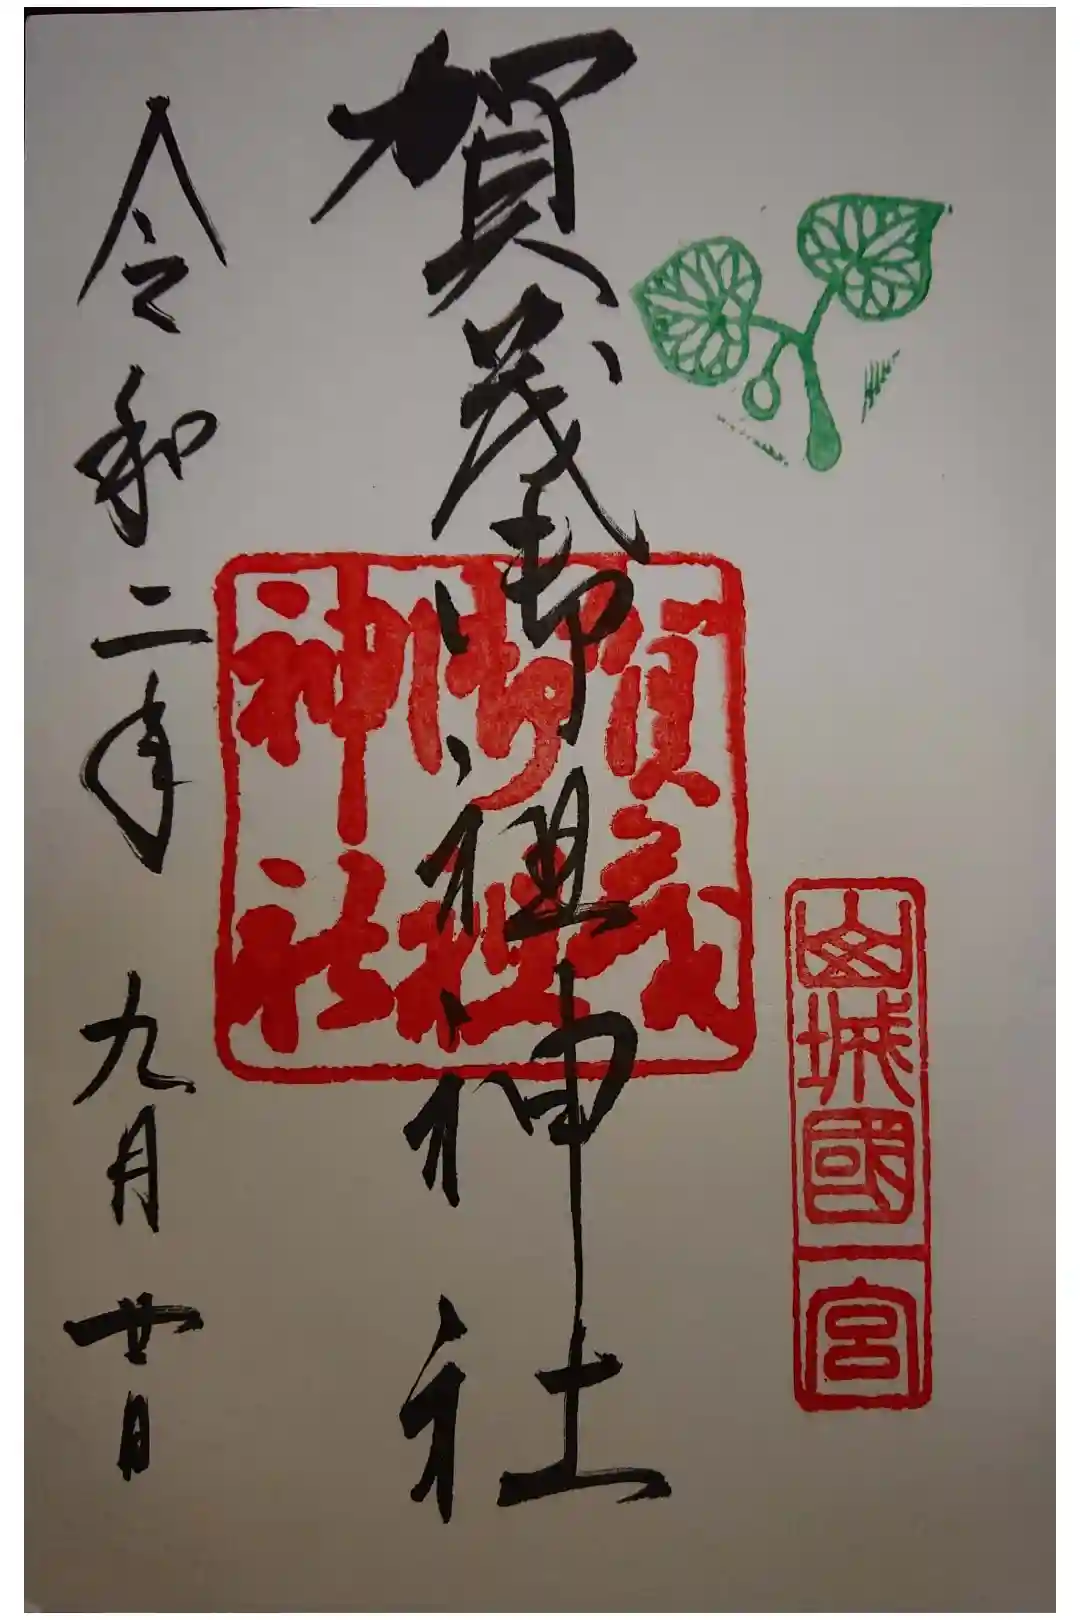 山城國一宮
賀茂御祖神社
賀茂
御祖
神社
令和二年九月廿日